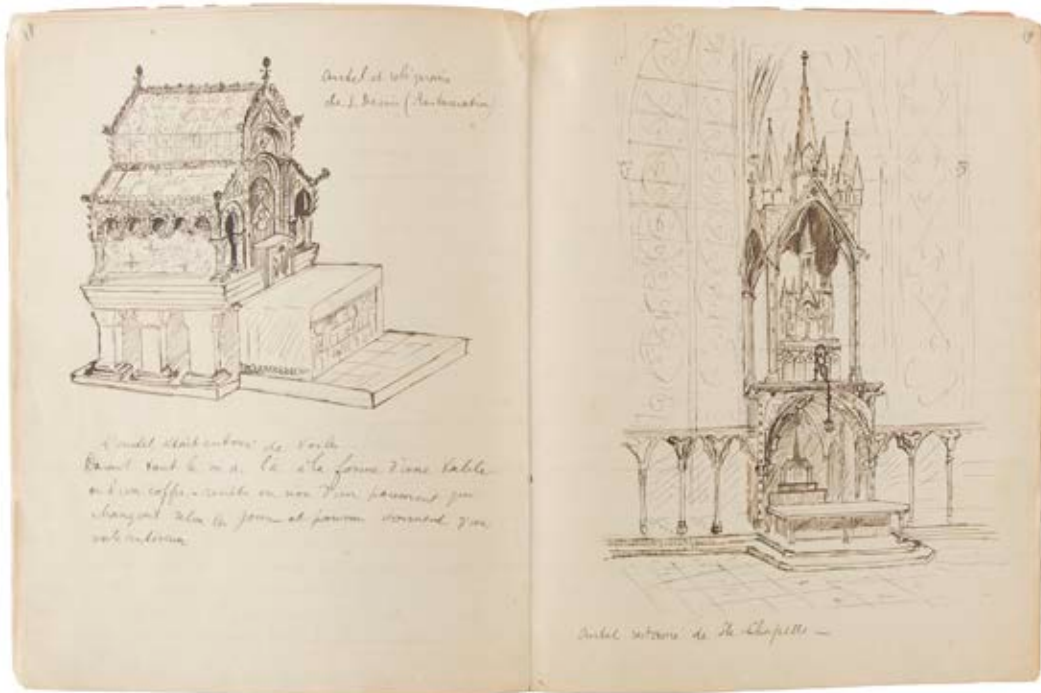 Autel et reliquaire
de S. Denis (Restauration)
L'autel était entouré de voiles
Durant tout le m.a. a la forme d'une table
ou d'un coffre - revêtu ou non d'un parement
changent selon les jours et souvent d'un
voile
19
Autel restauré de Ste Chapelle —